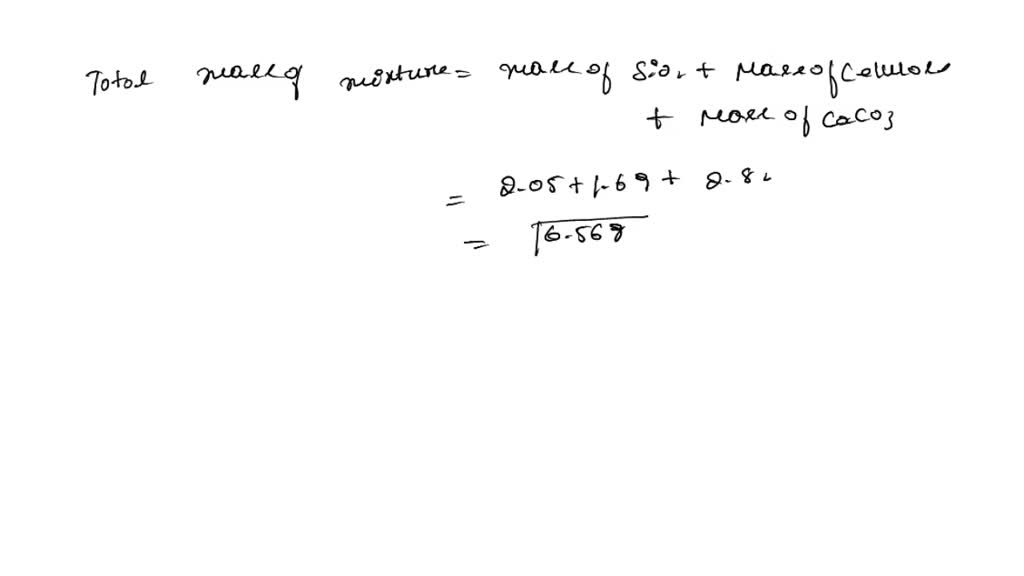 Total mass of mixture = mass of SiO2 + Mass of Cellulose
+ mass of CaCO3
= 2.05 + 1.69 + 2.82
= 6.56g